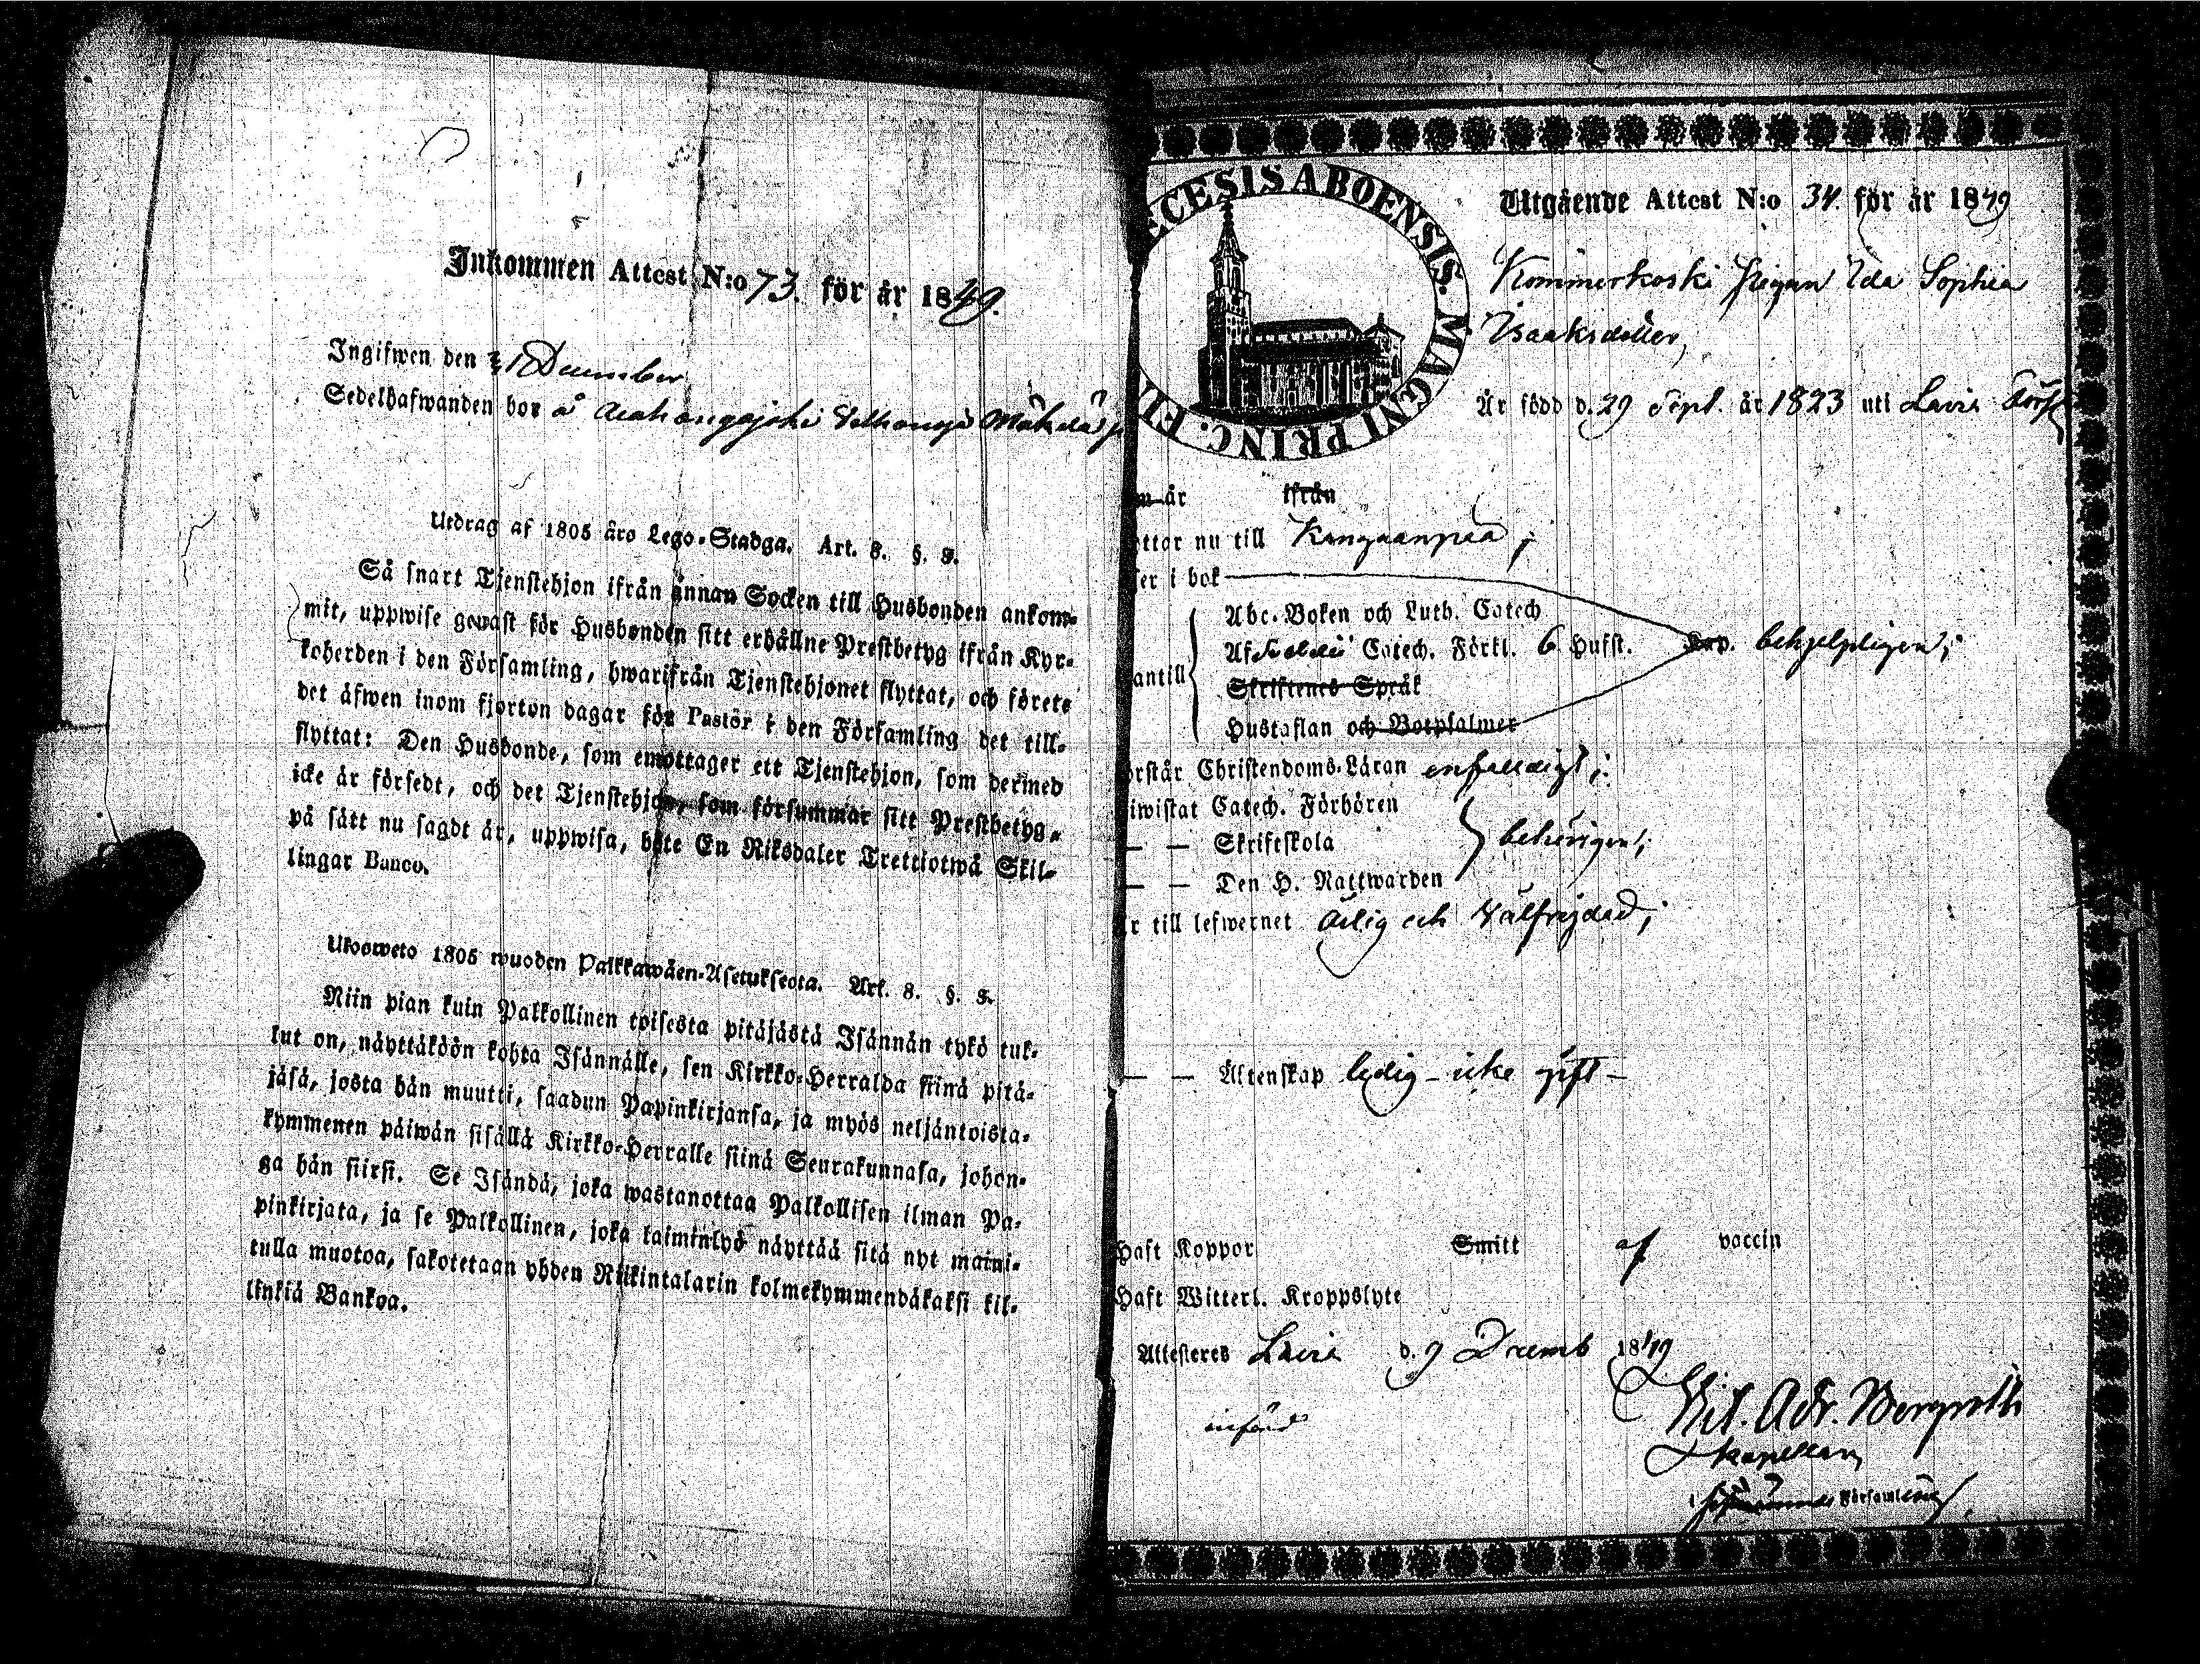 Inkommen Attest N:o 73. för år 1849.
Ingifwen den 31 December
Sedelhafwanden bor å
Utdrag af 1805 års Lego-Stadga. Art. 8. §. 3.
Så snart Tjenstehjon ifrån annan Socken till Husbonden ankom-
mit, uppwise genast för Husbonden sitt erhållne Prestbetyg ifrån Kyr-
koherden i den Församling, hwarifrån Tjenstehjonet flyttat, och förete
det äfwen inom fjorton dagar för Pastor i den Församling det till-
flyttat: Den Husbonde, som emottager ett Tjenstehjon, som dermed
icke är försedt, och det Tjenstehjon, som försummar sitt Prestbetyg,
på sätt nu sagdt är, uppwisa, böte En Riksdaler Trettiotwå Skil-
lingar Banco.
Ulosweto 1805 wuoden Palkkawäen-Asetuksesta. Art. 8. §. 3.
Niin pian kuin Palkollinen toisesta pitäjästä Isännän tykö tul-
lut on, näyttäköön kohta Isännälle, sen Kirkko-Herralda siinä pitä-
jäsä, josta hän muutti, saadun Papinkirjansa, ja myös neljäntoista-
kymmenen päiwän sisällä Kirkko-Herralle siinä Seurakunnasa, johon-
ga hän siirsi. Se Isändä, joka wastanottaa Palkollisen ilman Pa-
pinkirjata, ja se Palkollinen, joka laiminlyö näyttää sitä nyt maini-
tulla muotoa, sakotetaan yhden Riikintalarin kolmekymmendäkaksi kil-
linkiä Bankoa.
ECESIS ABOENSIS. MAGNI PRINC. FI
Utgående Attest N:o 34. för år 1849
Kommerkoski Pigan Ida Sophia
Isaaksdotter,
Är född d. 29 Sept. år 1823 uti Lavia
år ifrån
ttar nu till Kangaanpää;
ser i bok
Abc-Boken och Luth. Catech
Af Svebelii Catech. Förkl. 6 Hufst. behjelpligen;
antill Skriftenes Språk
Hustaflan och Botpsalmer
örstår Christendoms-Läran enfaldigt;
iwistat Catech. Förhören
— — Skriftskola behörigen;
— — Den H. Nattwarden
r till lefwernet ärlig och wälfrejdad;
— — Äktenskap ledig – icke gift –
Haft Koppor Smitt af vaccin
Haft Witterl. Kroppslyte
Attesteras Lavia d. 9 Decemb 1849
Adr. Bergroth
kapellan
införd
Församling